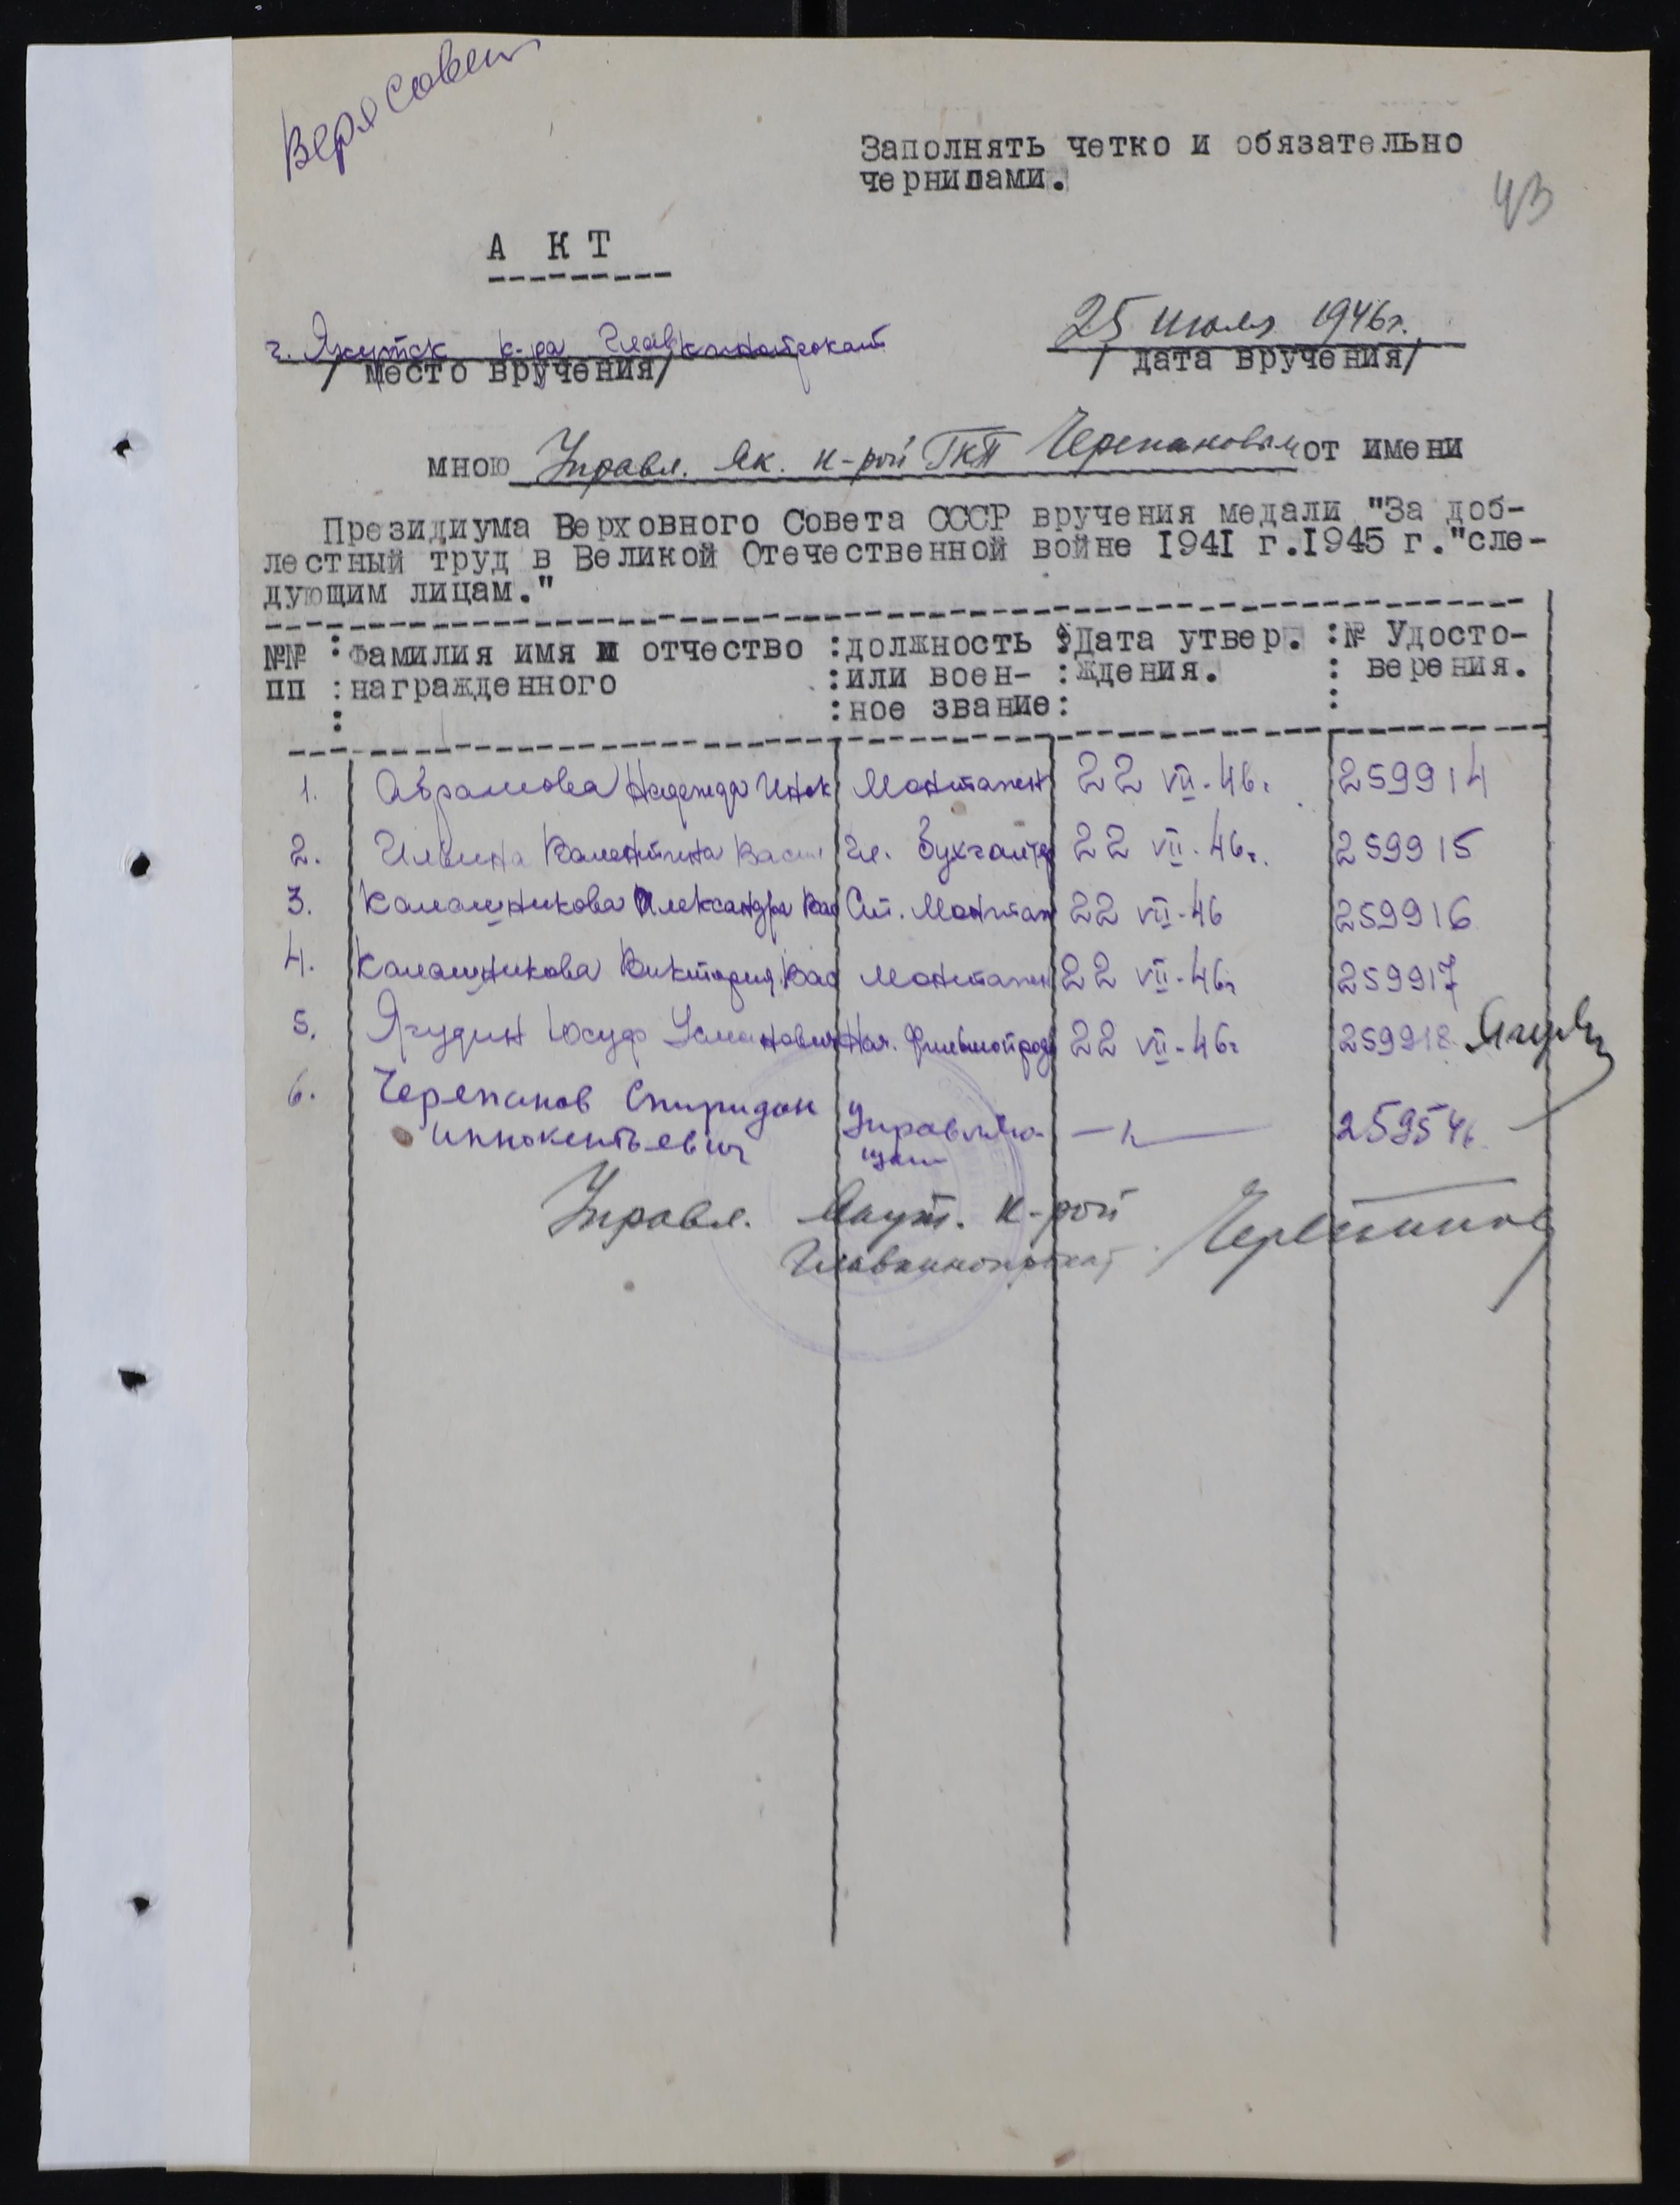 Верх Совет
Заполнять четко и обязательно
чернилами.
43
А К Т
г. Якутск к-ра Главкинопрокат
25 июля 1946г.
/место вручения/
/дата вручения/
мною Управл. Як. к-рой ГКП Черепановым от имени
Президиума Верховного Совета СССР вручения медали "За доб-
лестный труд в Великой Отечественной войне 1941 г.1945 г."сле-
дующим лицам."
№№ : Фамилия имя и отчество : должность : Дата утвер. : № Удосто-
пп : награжденного : или воен- : ждения. : верения.
: : ное звание : :
1. Абрамова Надежда Инок Монтажн 22 VII-46г. 259914
2. Ильина Валентина Васи Гл. Бухгалтер 22 VII-46г. 259915
3. Калашникова Александра Вас Ст. Монтаж 22 VII-46 259916
4. Калашникова Виктория Вас Монтажн 22 VII-46г 259917
5. Ягудин Юсуф Усманович Нач. Фильмопров 22 VII-46г 259918 Ягуд
6. Черепанов Спиридон Управляю- —"— 259546
Иннокентьевич щий
Управл. Якут. к-рой
Главкинопрокат Черепанов